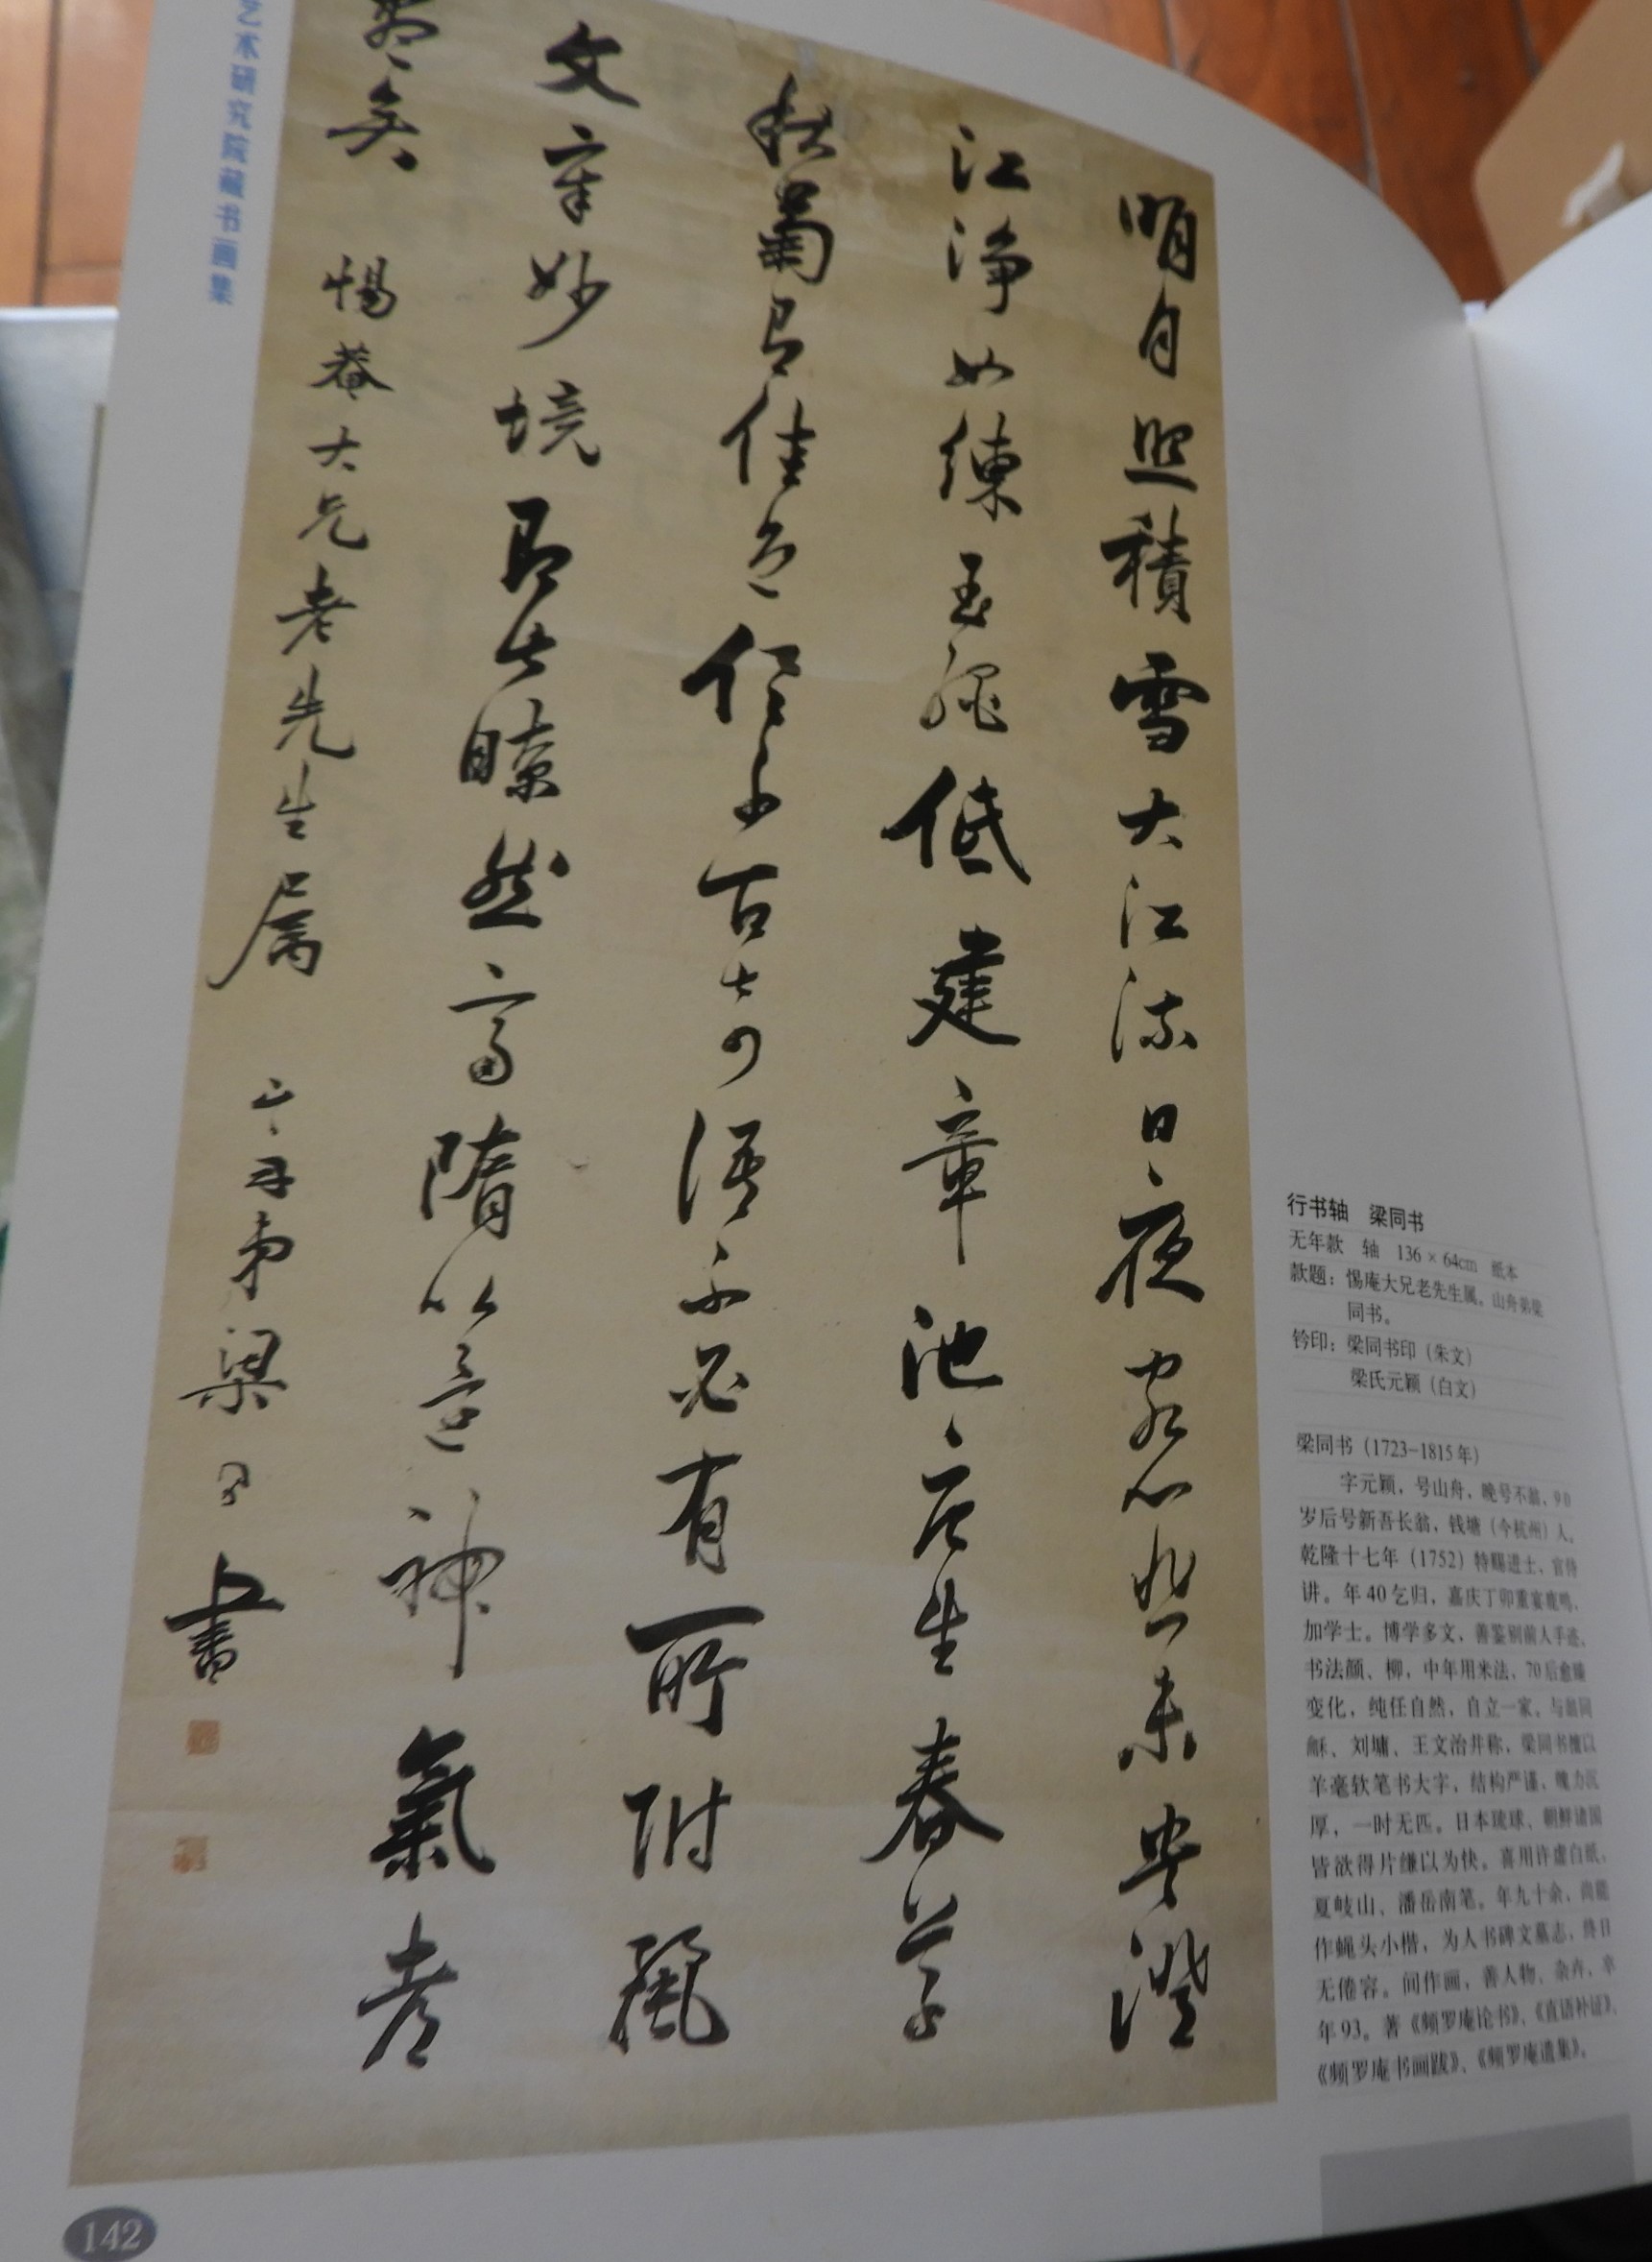 艺术研究院藏书画集
明月照積雪大江流日夜客心悲未央澄
江淨如練玉繩低建章池唐生春草
秋菊有佳色俱千古奇語不必有所附麗
文章妙境即此瞭然齊隋以還神氣都
盡矣 惕菴大兄老先生屬 山舟弟梁同書
行书轴 梁同书
无年款 轴 136×64cm 纸本
款题：惕庵大兄老先生属。山舟弟梁
同书。
钤印：梁同书印（朱文）
梁氏元颖（白文）
梁同书（1723-1815年）
字元颖，号山舟，晚号不翁、90
岁后号新吾长翁，钱塘（今杭州）人。
乾隆十七年（1752）特赐进士，官侍
讲。年40乞归，嘉庆丁卯重宴鹿鸣，
加学士。博学多文，善鉴别前人手迹，
书法颜、柳，中年用米法，70后愈臻
变化，纯任自然，自立一家。与翁同
稣、刘墉、王文治并称，梁同书擅以
羊毫软笔书大字，结构严谨，魄力沉
厚，一时无匹。日本琉球、朝鲜诸国
皆欲得片缣以为快。喜用许虚白纸、
夏岐山、潘岳南笔。年九十余，尚能
作蝇头小楷，为人书碑文墓志，终日
无倦容。间作画，善人物、杂卉，卒
年93。著《频罗庵论书》、《直语补证》、
《频罗庵书画跋》、《频罗庵遗集》。
142